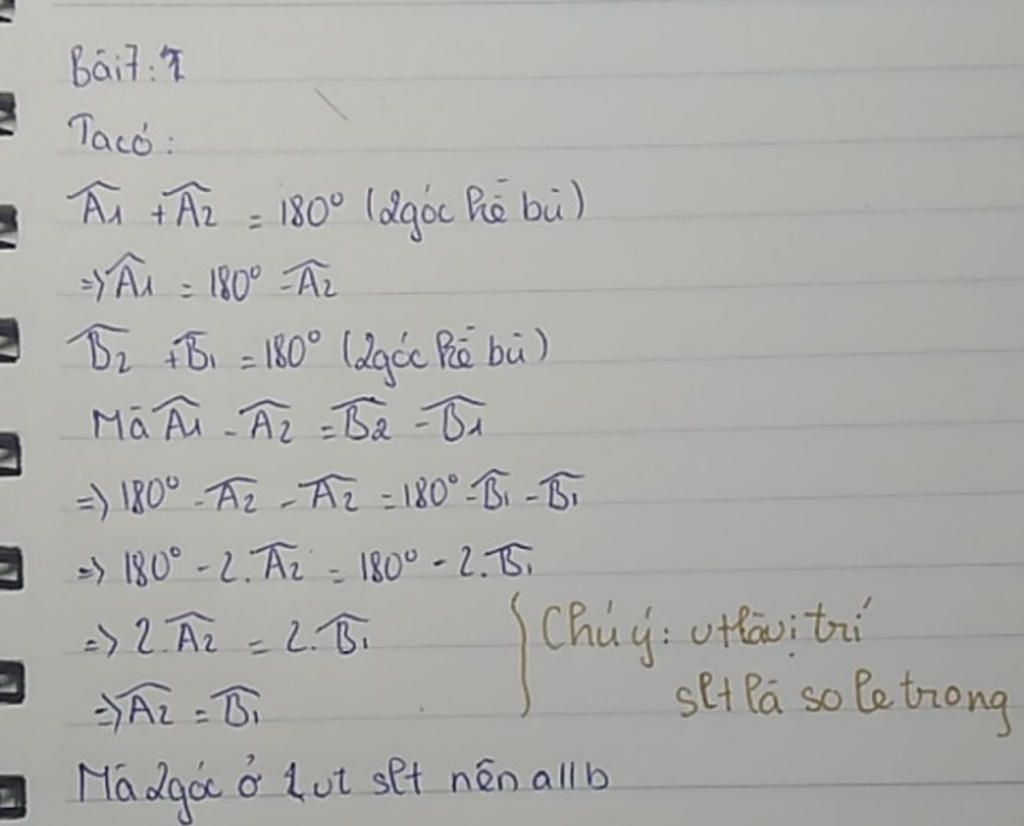 Bài 7: 1
Ta có:
Â1 + Â2 = 180° (2 góc kề bù)
=> Â1 = 180° - Â2
B̂2 + B̂1 = 180° (2 góc kề bù)
Mà Â1 - Â2 = B̂2 - B̂1
=> 180° - Â2 - Â2 = 180° - B̂1 - B̂1
=> 180° - 2. Â2 = 180° - 2. B̂1
=> 2. Â2 = 2. B̂1
=> Â2 = B̂1
Chú ý: vt là vị trí
slt là so le trong
Mà 2 góc ở 1 vt slt nên a // b